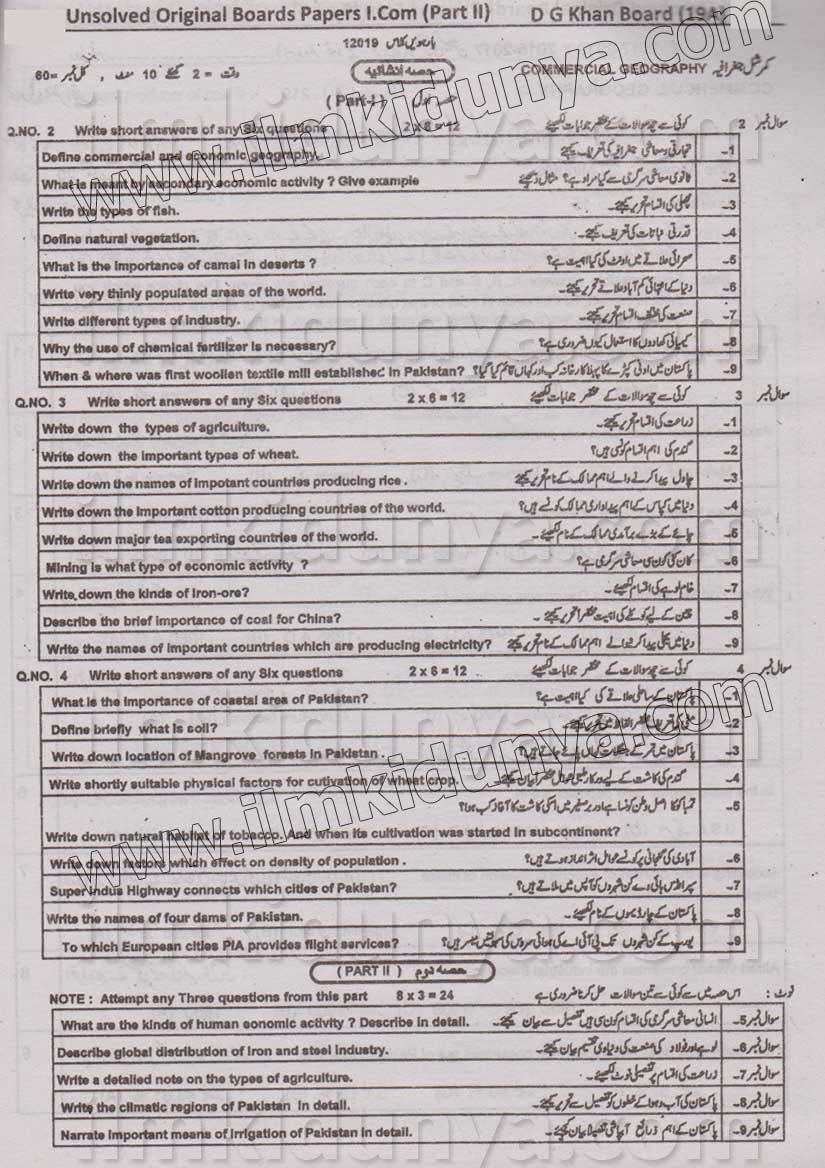 Unsolved Original Boards Papers I.Com (Part II) D G Khan Board (19A)
12019
COMMERCIAL GEOGRAPHY کمرشل جغرافیہ حصہ انشائیہ وقت = 2 گھنٹے 10 منٹ , کل نمبر =60
(Part-I) حصہ اول
Q.NO. 2 Write short answers of any Six questions 2 x 6 = 12 کوئی سے چھ سوالات کے مختصر جوابات لکھیئے سوال نمبر 2
Define commercial and economic geography. تجارتی و معاشی جغرافیہ کی تعریف کیجئے -1
What is meant by secondary economic activity ? Give example ثانوی معاشی سرگری سے کیا مراد ہے؟ مثال دیجئے -2
Write the types of fish. مچھلی کی اقسام تحریر کیجئے۔ -3
Define natural vegetation. قدرتی نباتات کی تعریف کیجئے۔ -4
What is the importance of camal in deserts ? صحرائی علاقے میں اونٹ کی کیا اہمیت ہے؟ -5
Write very thinly populated areas of the world. دنیا کے انتہائی کم آباد علاقے تحریر کیجئے۔ -6
Write different types of industry. صنعت کی مختلف اقسام تحریر کیجئے۔ -7
Why the use of chemical fertilizer is necessary? کیمیائی کھادوں کا استعمال کیوں ضروری ہے؟ -8
When & where was first woollen textile mill established in Pakistan? پاکستان میں اونی کپڑے کا پہلا کارخانہ کب اور کہاں قائم کیا گیا؟ -9
Q.NO. 3 Write short answers of any Six questions 2 x 6 = 12 کوئی سے چھ سوالات کے مختصر جوابات لکھیئے سوال نمبر 3
Write down the types of agriculture. زراعت کی اقسام تحریر کیجئے۔ -1
Write down the important types of wheat. گندم کی اہم اقسام کونسی ہیں؟ -2
Write down the names of impotant countries producing rice . چاول پیدا کرنے والے اہم ممالک کے نام تحریر کیجئے -3
Write down the important cotton producing countries of the world. دنیا میں کپاس کے اہم پیداواری ممالک کونسے ہیں؟ -4
Write down major tea exporting countries of the world. چائے کے بڑے برآمدی ممالک کے نام لکھیئے۔ -5
Mining is what type of economic activity ? کان کنی کون سی معاشی سرگری ہے؟ -6
Write down the kinds of iron-ore? خام لوہے کی اقسام لکھیئے۔ -7
Describe the brief importance of coal for China? چین کے لیے کوئلے کی اہمیت مختصراً تحریر کیجئے۔ -8
Write the names of important countries which are producing electricity? دنیا میں بجلی پیدا کرنیوالے اہم ممالک کے نام تحریر کیجئے -9
Q.NO. 4 Write short answers of any Six questions 2 x 6 = 12 کوئی سے چھ سوالات کے مختصر جوابات لکھیئے سوال نمبر 4
What is the importance of coastal area of Pakistan? پاکستان کے ساحلی علاقے کی کیا اہمیت ہے؟ -1
Define briefly what is soil? مٹی کی تعریف مختصر الفاظ میں تحریر کیجئے -2
Write down location of Mangrove forests in Pakistan . پاکستان میں تمر کے جنگلات کہاں پائے جاتے ہیں؟ -3
Write shortly suitable physical factors for cutivation of wheat crop. گندم کی کاشت کے لیے مددگار طبعی عوامل مختصراً بیان کیجئے۔ -4
تمباکو کا اصل وطن کونسا ہے اور برصغیر میں اسکی کاشت کا آغاز کب ہوا؟ -5
Write down natural habitat of tobacco. And when its cultivation was started in subcontinent?
Write down factors which effect on density of population . آبادی کی گنجانی پر کونسے عوامل اثر انداز ہوتے ہیں؟ -6
Super Indus Highway connects which cities of Pakistan? سپر انڈس ہائی وے کن شہروں کو آپس میں ملاتے ہیں؟ -7
Write the names of four dams of Pakistan. پاکستان کے چار ڈیموں کے نام لکھیئے۔ -8
To which European cities PIA provides flight services? یورپ کے کن شہروں تک پی آئی اے کی ہوائی سروس کی سہولتیں میسر ہیں؟ -9
(PART II) حصہ دوم
NOTE : Attempt any Three questions from this part 8 x 3 = 24 اس حصہ میں سے کوئی سے تین سوالات حل کرنا ضروری ہے نوٹ :
What are the kinds of human eonomic activity ? Describe in detail. انسانی معاشی سرگری کی اقسام کون سی ہیں تفصیل سے بیان کیجئے۔ سوال نمبر 5۔
Describe global distribution of iron and steel industry. لوہے اور فولاد کی صنعت کی دنیاوی تقسیم بیان کیجئے۔ سوال نمبر 6۔
Write a detailed note on the types of agriculture. زراعت کی اقسام پر تفصیلی نوٹ لکھیئے۔ سوال نمبر 7۔
Write the climatic regions of Pakistan in detail. پاکستان کی آب و ہوا کے خطوں کو تفصیل سے تحریر کیجئے۔ سوال نمبر 8۔
Narrate important means of irrigation of Pakistan in detail. پاکستان کے اہم ذرائع آبپاشی تفصیلاً بیان کیجئے۔ سوال نمبر 9۔
www.ilmkidunya.com
www.ilmkidunya.com
ilmkidunya.com
ilmkidunya.com